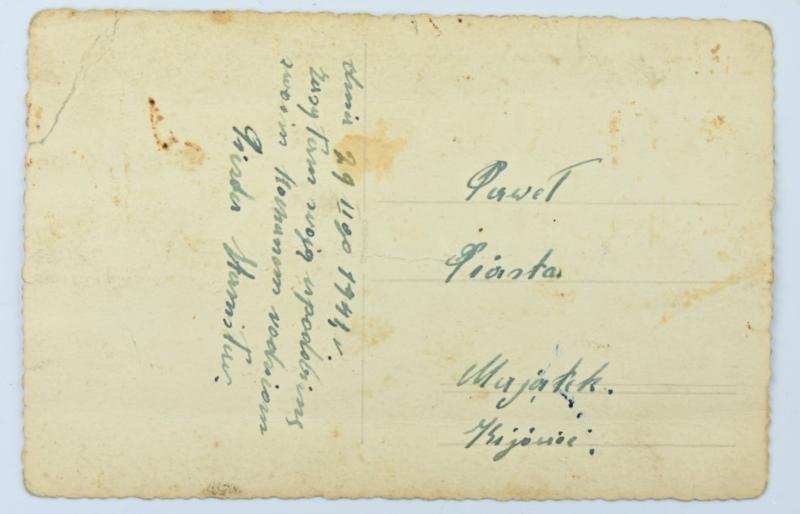 dnia 29 II go 1944 r.
swoją upodobiną
swoim Kochanem rodzicom
Piesta Stanisław
Paweł
Piasta
Majątek.
Kijowiec.